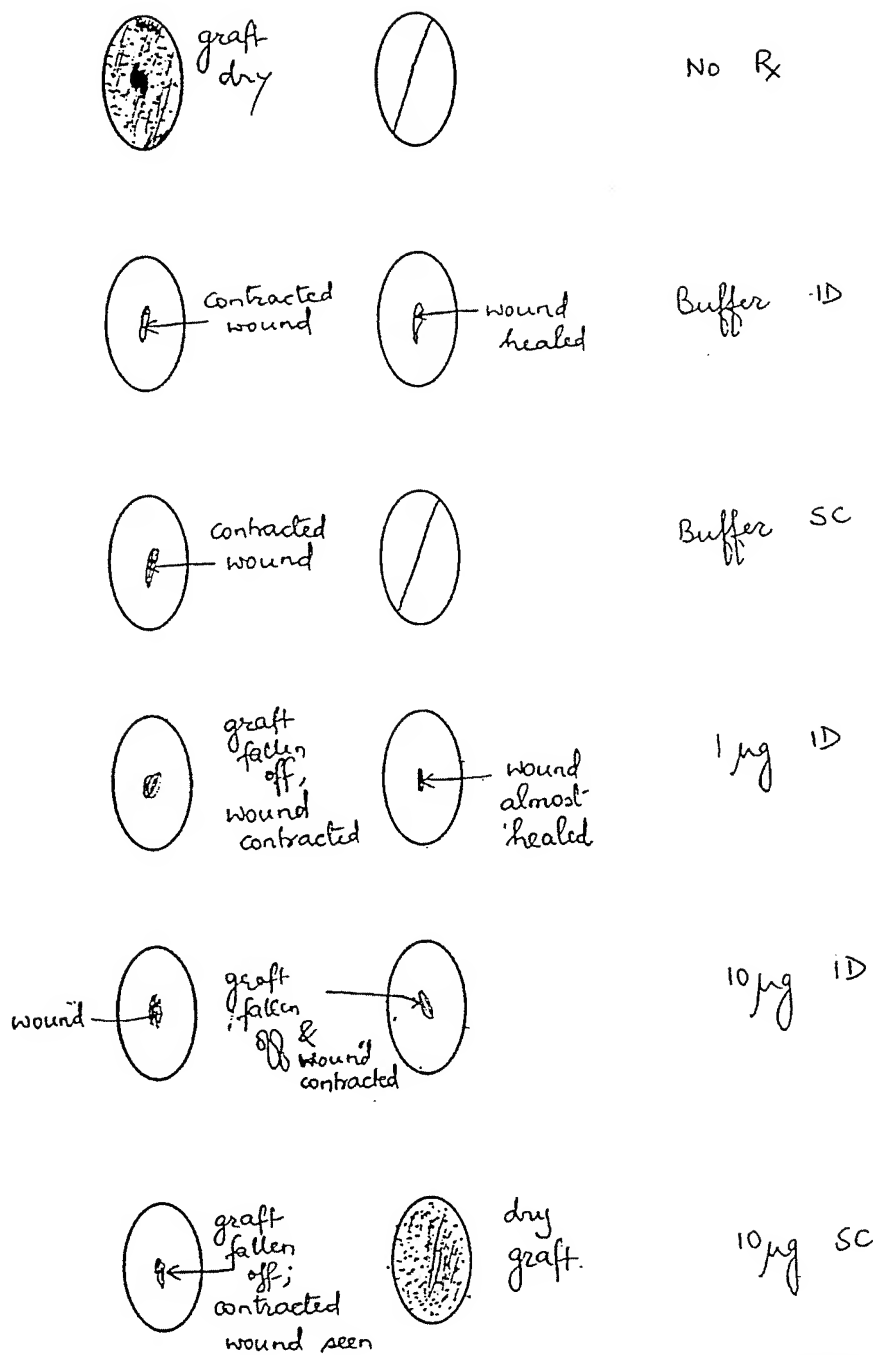 graft
dry
No Rx
contracted
wound
wound
healed
Buffer ID
contracted
wound
Buffer SC
graft
fallen
off;
wound
contracted
wound
almost
healed
1 μg ID
wound
graft
fallen
off &
wound
contracted
10 μg ID
graft
fallen
off;
contracted
wound seen
dry
graft.
10 μg SC